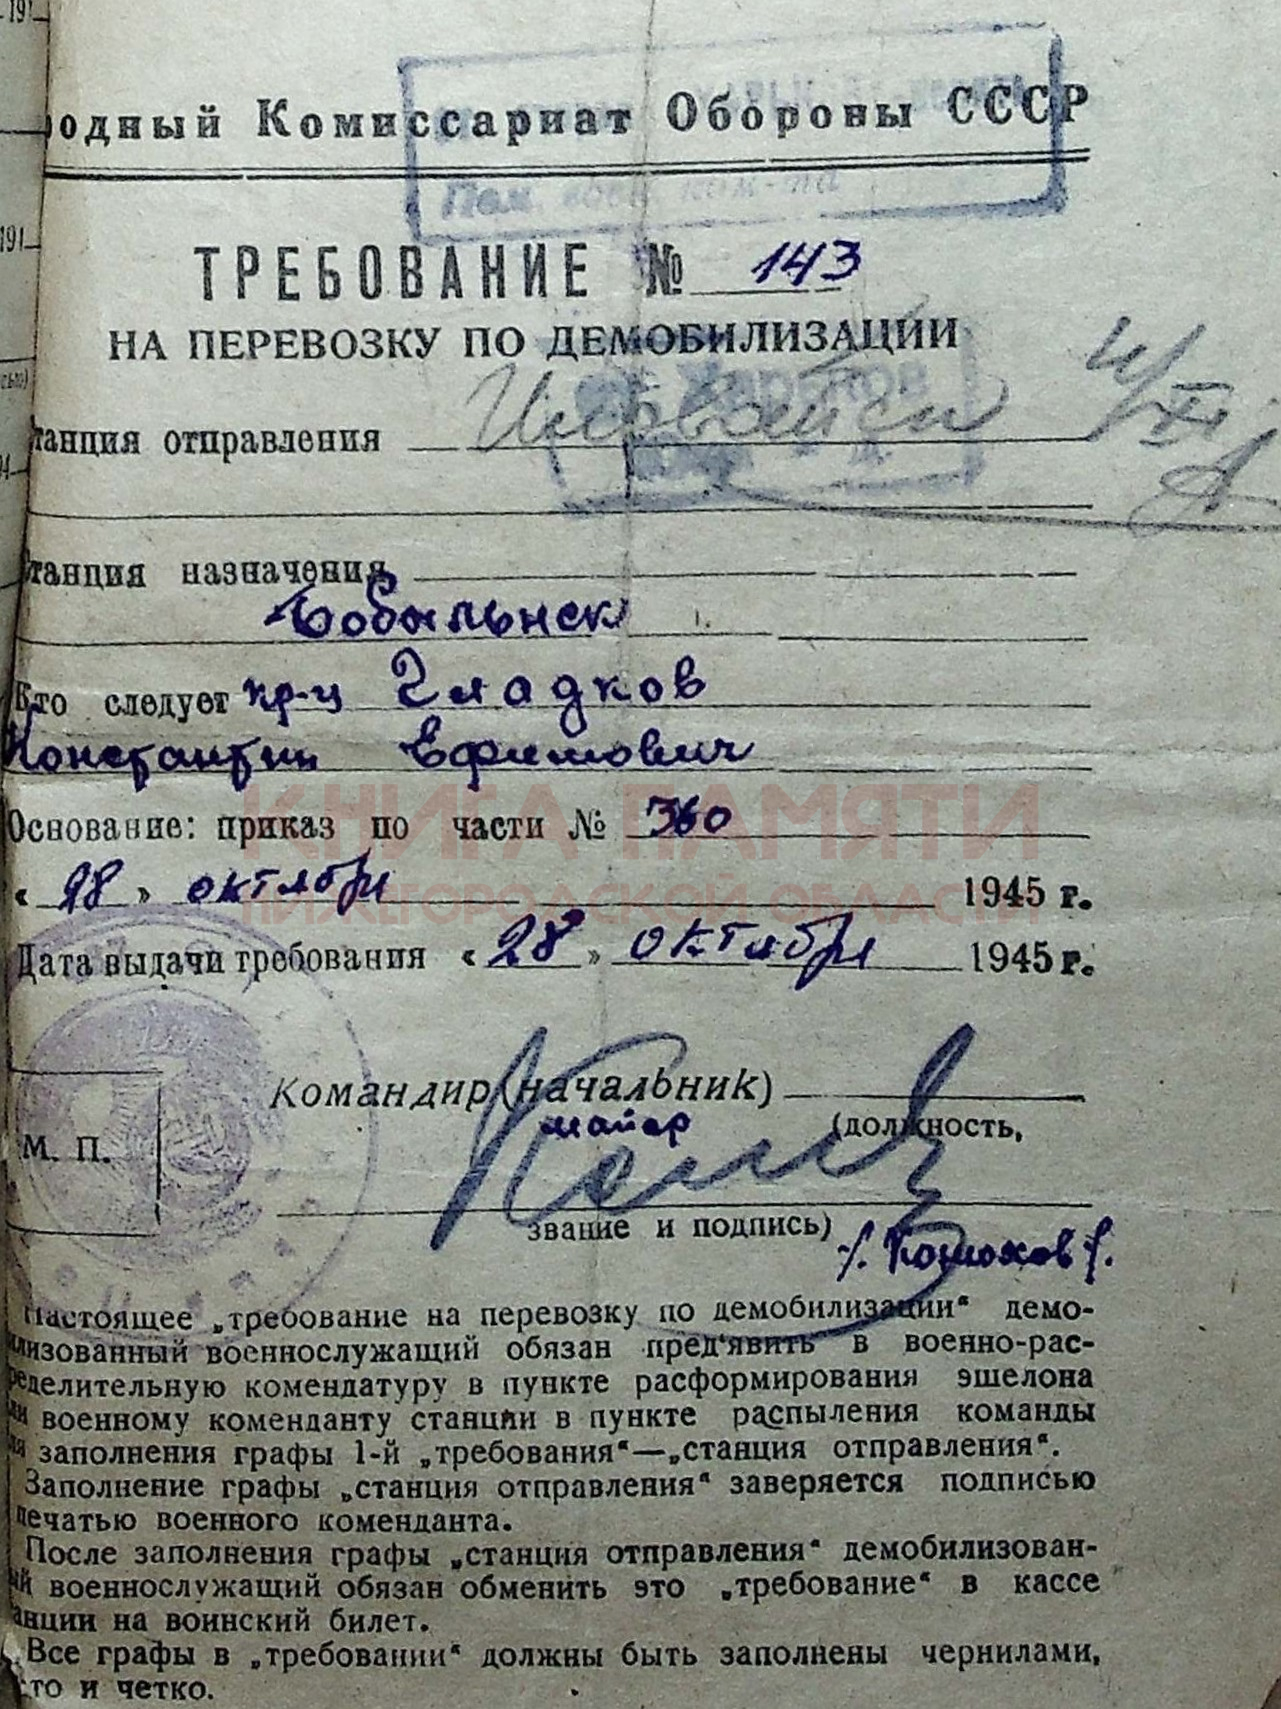 191
одный Комиссариат Обороны СССР
Пом. воен. ком-та
191
ТРЕБОВАНИЕ № 143
НА ПЕРЕВОЗКУ ПО ДЕМОБИЛИЗАЦИИ
Харьков
танция отправления
танция назначения
Кто следует кр-ц Гладков
Константин Ефимович
КНИГА ПАМЯТИ
Основание: приказ по части № 360
НИЖЕГОРОДСКОЙ ОБЛАСТИ
« 28 » октября 1945 г.
Дата выдачи требования « 28 » октября 1945 г.
Командир (начальник)
майор (должность,
М. П.
звание и подпись)
Настоящее „требование на перевозку по демобилизации“ демо-
лизованный военнослужащий обязан пред'явить в военно-рас-
ределительную комендатуру в пункте расформирования эшелона
ли военному коменданту станции в пункте распыления команды
ля заполнения графы 1-й „требования“—„станция отправления“.
Заполнение графы „станция отправления“ заверяется подписью
печатью военного коменданта.
После заполнения графы „станция отправления“ демобилизован-
ый военнослужащий обязан обменить это „требование“ в кассе
анции на воинский билет.
Все графы в „требовании“ должны быть заполнены чернилами,
сто и четко.